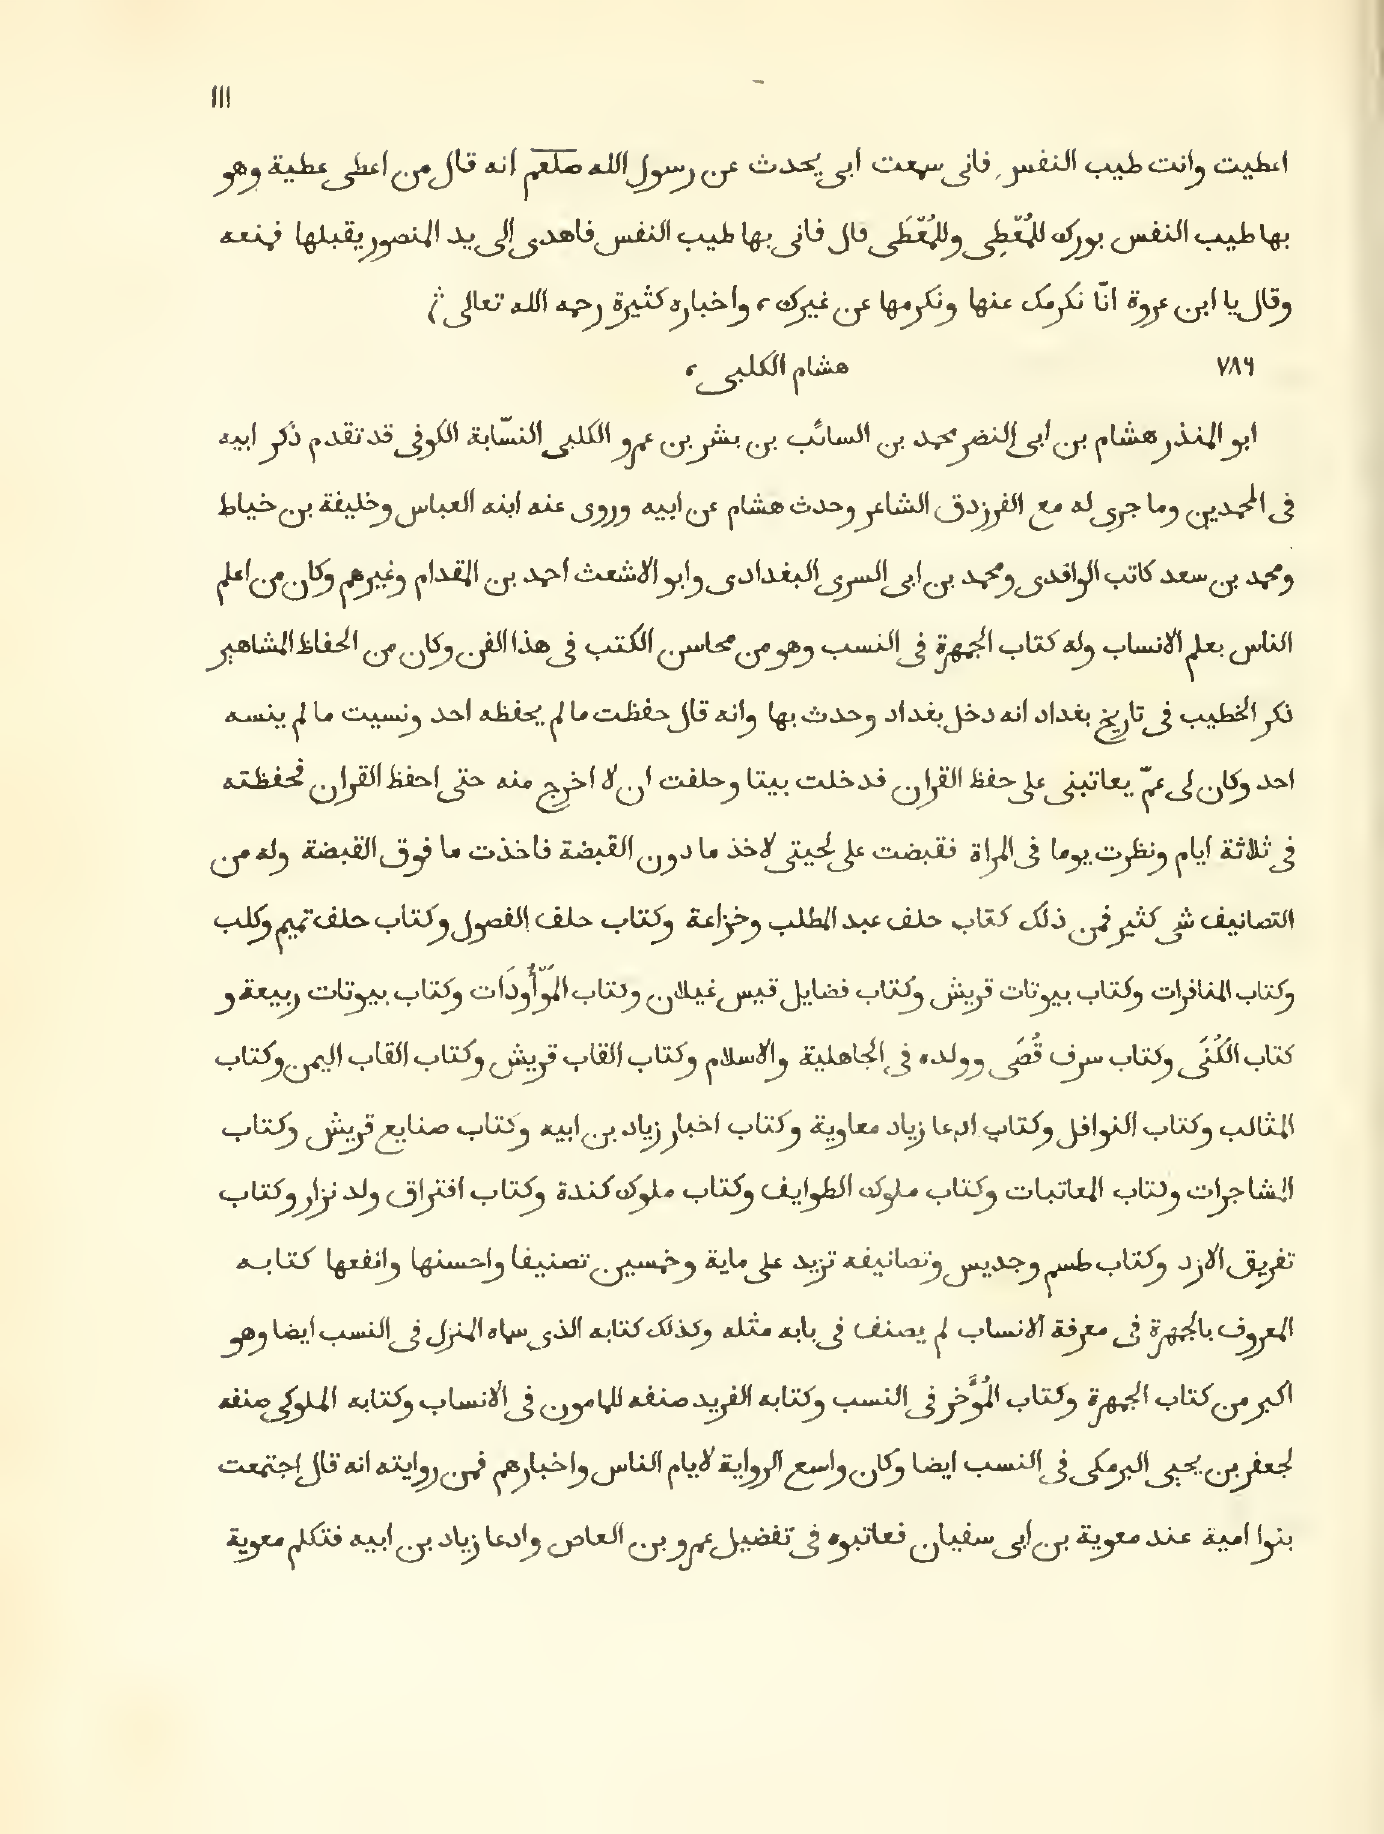 ١١١
اعطيت وانت طيب النفس، فانى سمعت ابى يحدث عن رسول الله صلعم انه قال من اعطى عطية وهو
بها طيب النفس بورك للمُعْطِى وللمُعْطَى قال فانى بها طيب النفس فاهدى الى يد المنصور يقبلها فمنعه
وقال يا ابن عروة انّا نكرمك عنها ونكرمها عن غيرك، واخباره كثيرة رحمه الله تعالى
٧٨٦ هشام الكلبى،
ابو المنذر هشام بن ابى النضر محمد بن السائب بن بشر بن عمرو الكلبى النسّابة الكوفى قد تقدم ذكر ابيه
فى المحمدين وما جرى له مع الفرزدق الشاعر وحدث هشام عن ابيه وروى عنه ابنه العباس وخليفة بن خياط
ومحمد بن سعد كاتب الواقدى ومحمد بن ابى السرى البغدادى وابو الاشعث احمد بن المقدام وغيرهم وكان من اعلم
الناس بعلم الانساب وله كتاب الجمهرة فى النسب وهو من محاسن الكتب فى هذا الفن وكان من الحفاظ المشاهير
ذكر الخطيب فى تاريخ بغداد انه دخل بغداد وحدث بها وانه قال حفظت ما لم يحفظه احد ونسيت ما لم ينسه
احد وكان لى عمّ يعاتبنى على حفظ القران فدخلت بيتا وحلفت ان لا اخرج منه حتى احفظ القران فحفظته
فى ثلاثة ايام ونظرت يوما فى المراة فقبضت على لحيتى لاخذ ما دون القبضة فاخذت ما فوق القبضة وله من
التصانيف شى كثير فمن ذلك كتاب حلف عبد المطلب وخزاعة وكتاب حلف الفصول وكتاب حلف تميم وكلب
وكتاب المنافرات وكتاب بيوتات قريش وكتاب فضايل قيس غيلان وكتاب المَوّأُودَات وكتاب بيوتات ربيعة و
كتاب الكُنَى وكتاب سرف قُصَى وولده فى الجاهلية والاسلام وكتاب القاب قريش وكتاب القاب اليمن وكتاب
المثالب وكتاب النوافل وكتاب ادعا زياد معاوية وكتاب اخبار زياد بن ابيه وكتاب صنايع قريش وكتاب
المشاجرات وكتاب المعاتبات وكتاب ملوك الطوايف وكتاب ملوك كندة وكتاب افتراق ولد نزار وكتاب
تفريق الازد وكتاب طسم وجديس وتصانيفه تزيد على ماية وخمسين تصنيفا واحسنها وانفعها كتابه
المعروف بالجمهرة فى معرفة الانساب لم يصنف فى بابه مثله وكذلك كتابه الذى سماه المنزل فى النسب ايضا وهو
اكبر من كتاب الجمهرة وكتاب المُؤَخر فى النسب وكتابه الفريد صنفه للمامون فى الانساب وكتابه الملوكى صنفه
لجعفر بن يحيى البرمكى فى النسب ايضا وكان واسع الرواية لايام الناس واخبارهم فمن روايته انه قال اجتمعت
بنوا امية عند معوية بن ابى سفيان فعاتبوه فى تفضيل عمرو بن العاص وادعا زياد بن ابيه فتكلم معوية